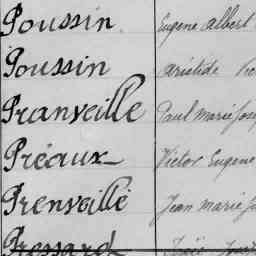 Poussin. Eugène Albert
Poussin Aristide
Pranveille Paul Marie
Préaux Victor Eugene
Prenveille Jean Marie
Pressard